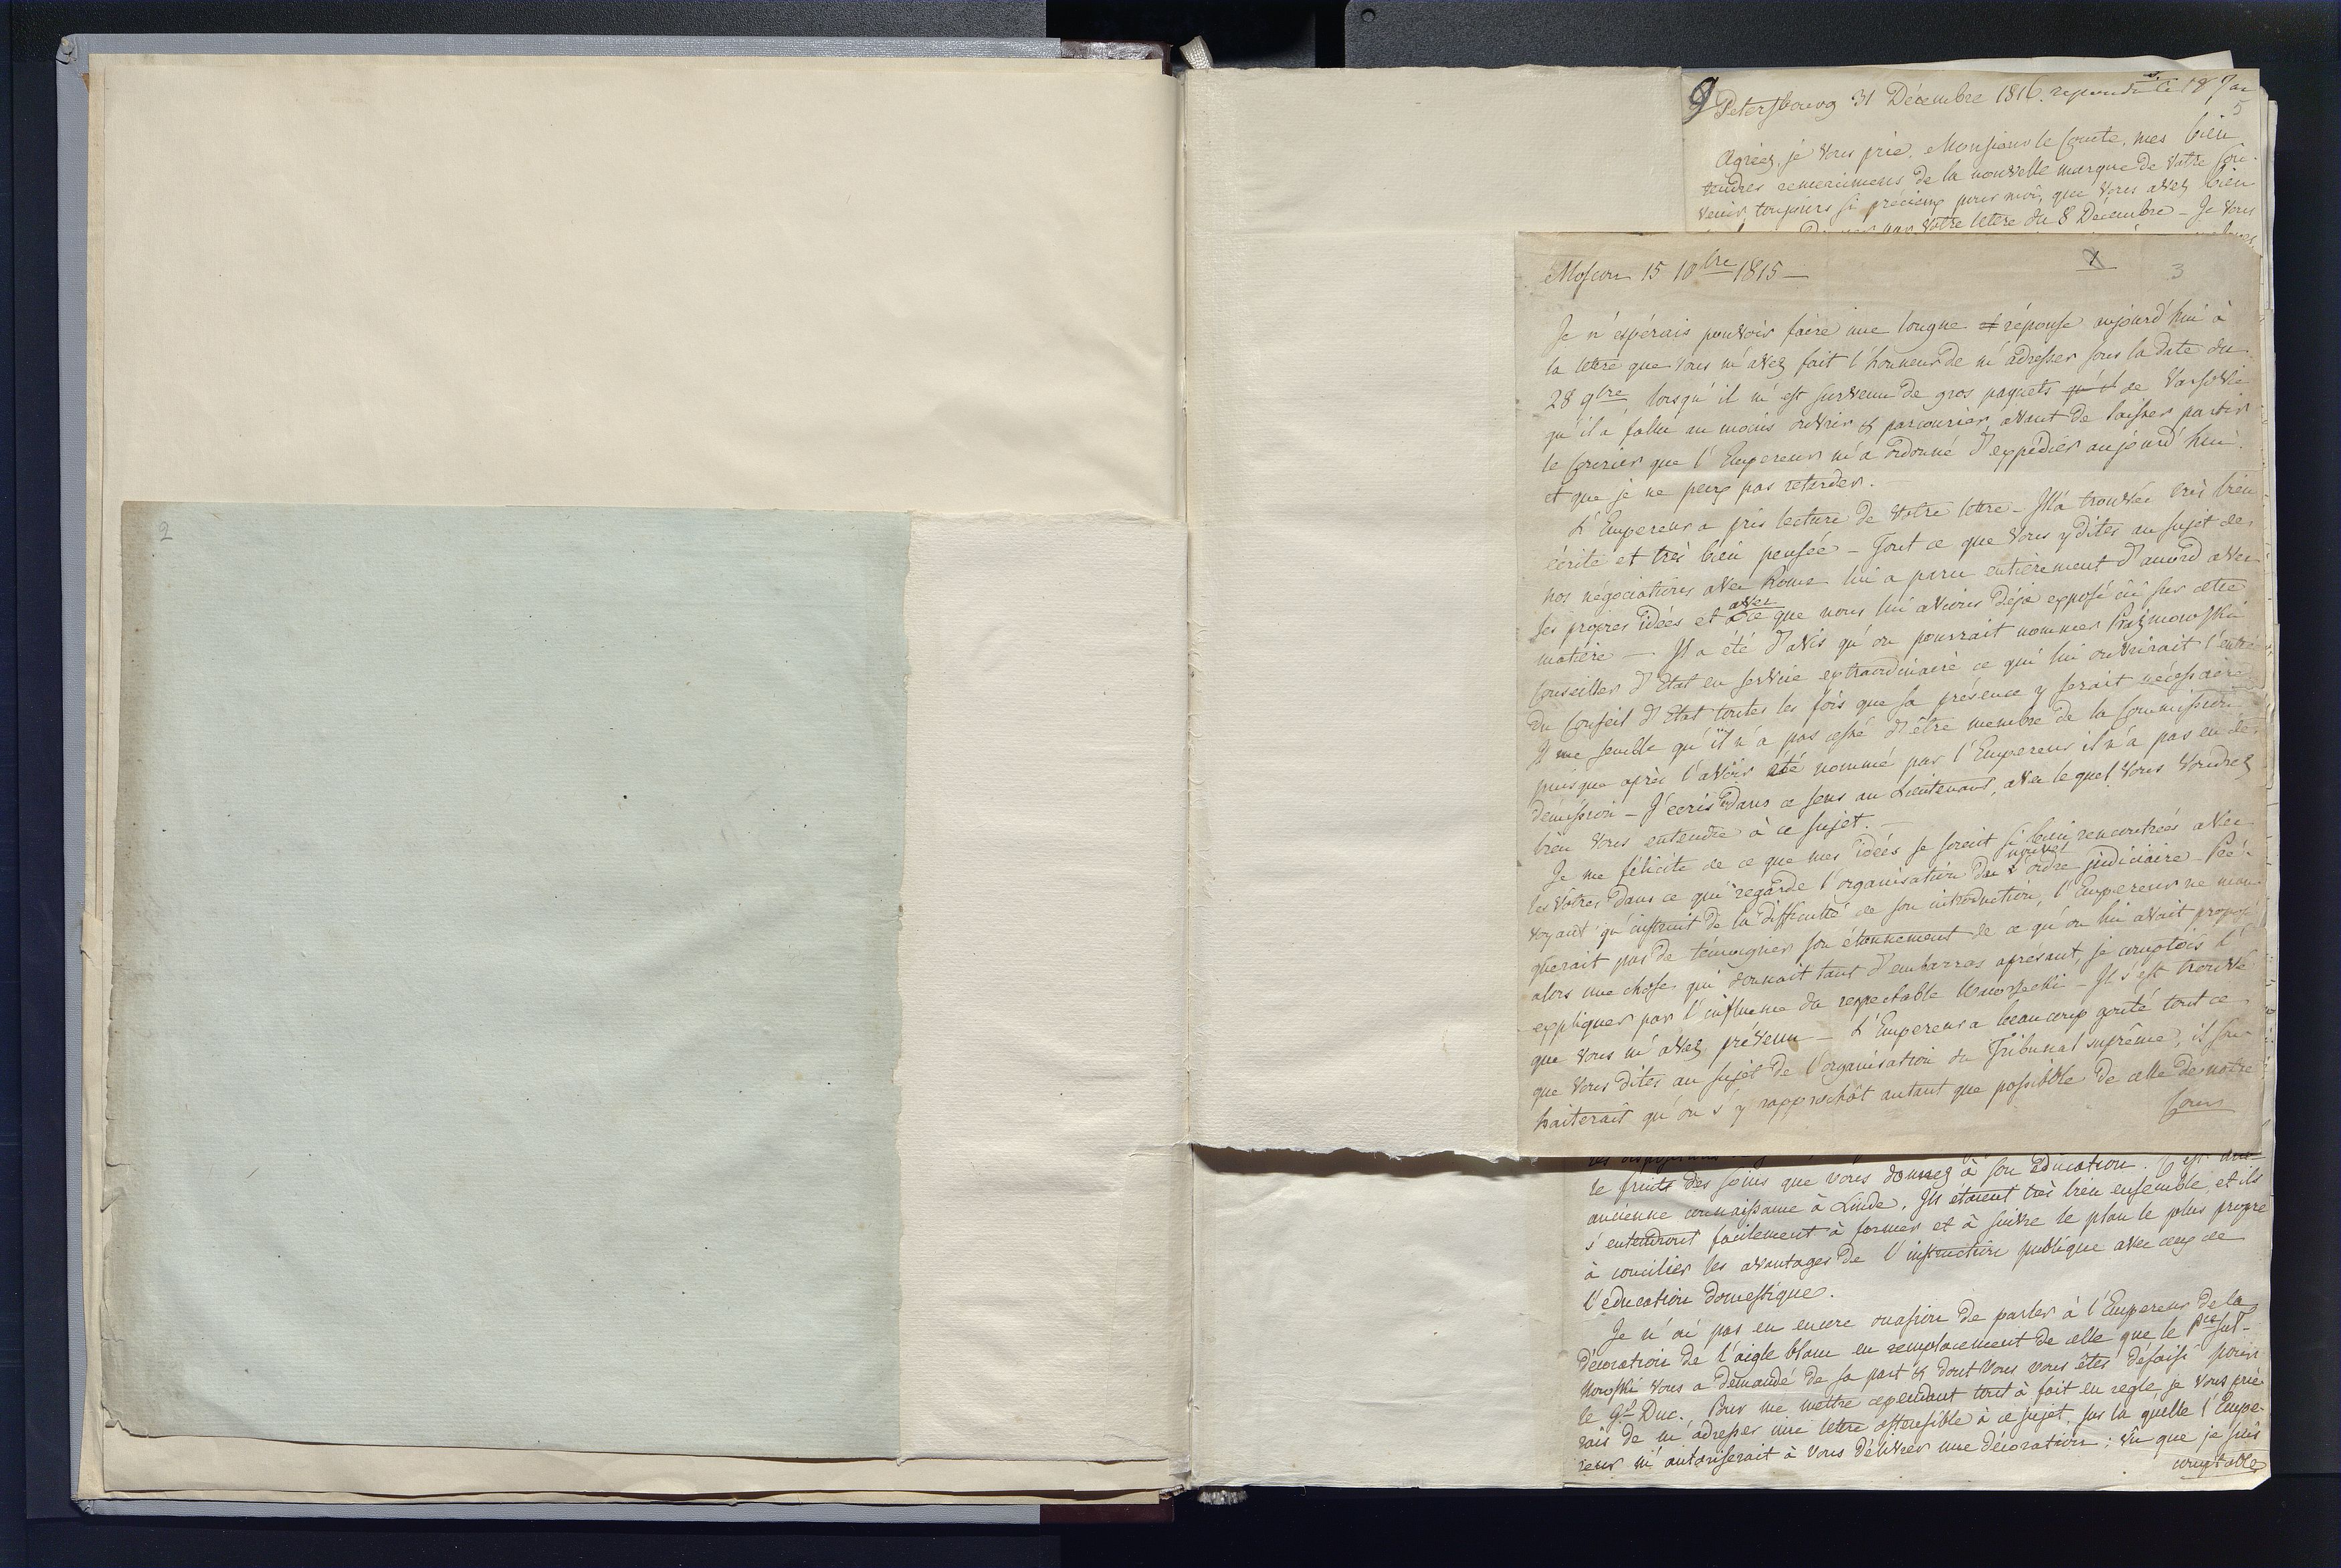 2
9
Petersbourg 31 Décembre 1816. repondu le 18 Jan
5
Agréez, je vous prie, Monsieur le Comte, mes bien
tendres remercimens de la nouvelle marque de votre sou-
venir, toujours si précieux pour moi, que vous avez bien
par votre lettre du 8 Décembre - Je vous
Moscou 15 10bre 1815 —
1
3
Je n'espérais pouvoir faire une longue réponse aujourd'hui à
la lettre que vous m'avez fait l'honneur de m'adresser sous la date du
28 9bre lorsqu'il m'est survenu de gros paquets de Varsovie
qu'il a fallu au moins ouvrir & parcourier, avant de laisser partir
le Courier que l'Empereur m'a ordonné d'expédier aujourd'hui.
et que je ne peux pas retarder.
L'Empereur a pris lecture de votre lettre - Il l'a trouvée très bien
écrite et très bien pensée - Tout ce que vous y dites au sujet de
nos négociations avec Rome lui a paru entièrement d'accord avec
ses propres idées et avec ce que nous lui avions déja exposé ici sur cette
matière —. Il a été d'avis qu'on pourrait nommer Prażmowski
Conseiller d'Etat en service extraordinaire ce qui lui ouvrirait l'entrée
du Conseil d'Etat toutes les fois que sa présence y serait nécessaire
Il me semble qu'il n'a pas cessé d'être membre de la Commission
puisque après l'avoir été nommé par l'Empereur il n'a pas eu de
démission - J'écris dans ce sens au Lieutenant, avec le quel vous voudrez
bien vous entendre à ce sujet. —
Je me félicite de ce que mes idées se soient si bien rencontrées avec
les vôtres dans ce qui regarde l'organisation du nouvel ordre judiciaire - Pré-
voyant qu'instruit de la difficulté de son introduction, l'Empereur ne man-
querait pas de témoigner son étonnement de ce qu'on lui avait proposé
alors une chose, qui donnait tant d'embarras aprésant, je comptois l'
expliquer par l'influence du respectable Wawrzecki - Il s'est trouvé
que vous m'avez prévenu - L'Empereur a beaucoup gouté tout ce
que vous dites au sujet de l'organisation du Tribunal suprême, il sou-
haiterait qu'on s'y rapprochât autant que possible de celle de notre
Cour
le fruits des soins que vous donnez à son éducation. C'est une
ancienne connaissance à Linde. Ils étoient très bien ensemble, et ils
s'entendront facilement à former et à suivre le plan le plus propre
à concilier les avantages de l'instruction publique avec ceux de
l'education domestique.
Je n'ai pas eu encore occasion de parler à l'Empereur de la
décoration de l'aigle blanc en remplacement de celle que le Pce Sul-
kowski vous a demandé de sa part & dont vous vous êtes défaisi pour
le Gd Duc. Pour me mettre cependant tout à fait en regle, je vous prie-
rais de m'adresser une lettre ostensible à ce sujet, sur la quelle l'Empe-
reur m'autoriserait à vous délivrer une décoration: vû que je suis
comptable